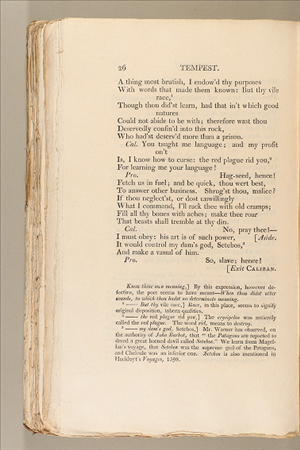 26 TEMPEST.
A thing most brutish, I endow'd thy purposes
With words that made them known: But thy vile
race,¹
Though thou did'st learn, had that in't which good
natures
Could not abide to be with; therefore wast thou
Deservedly confin'd into this rock,
Who had'st deserv'd more than a prison.
Cal. You taught me language; and my profit
on't
Is, I know how to curse: the red plague rid you,²
For learning me your language!
Pro. Hag-seed, hence!
Fetch us in fuel; and be quick, thou wert best,
To answer other business. Shrug'st thou, malice?
If thou neglect'st, or dost unwillingly
What I command, I'll rack thee with old cramps;
Fill all thy bones with aches; make thee roar
That beasts shall tremble at thy din.
Cal. No, pray thee!—
I must obey: his art is of such power, [Aside.
It would control my dam's god, Setebos,³
And make a vassal of him.
Pro. So, slave; hence!
[Exit CALIBAN.
Know thine own meaning,] By this expression, however de-
fective, the poet seems to have meant—When thou didst utter
sounds, to which thou hadst no determinate meaning.
¹ —— But thy vile race,] Race, in this place, seems to signify
original disposition, inborn qualities.
² —— the red plague rid you,] The erysipelas was anciently
called the red plague. The word rid, means to destroy.
³ —— my dam's god, Setebos,] Mr. Warner has observed, on
the authority of John Barbot, that "the Patagons are reported to
dread a great horned devil called Setebos." We learn from Magel-
lan's voyage, that Setebos was the supreme god of the Patagons,
and Cheleule was an inferior one. Setebos is also mentioned in
Hackluyt's Voyages, 1598.